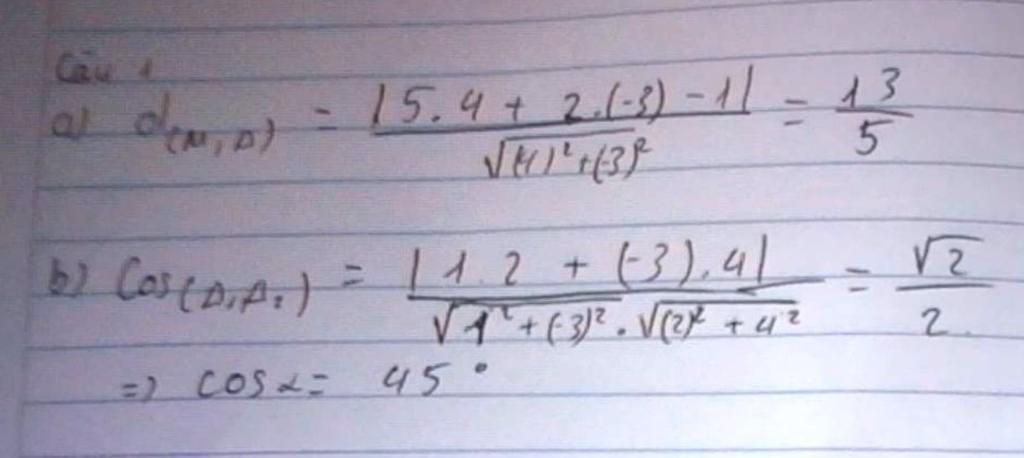 Câu 1
a) d(M, Δ) = |5.4 + 2.(-3) - 1| / √(4)² + (-3)² = 13 / 5
b) Cos(Δ, Δ₂) = |1.2 + (-3).4| / √1² + (-3)² . √(2)² + 4² = √2 / 2
=> cos α = 45°